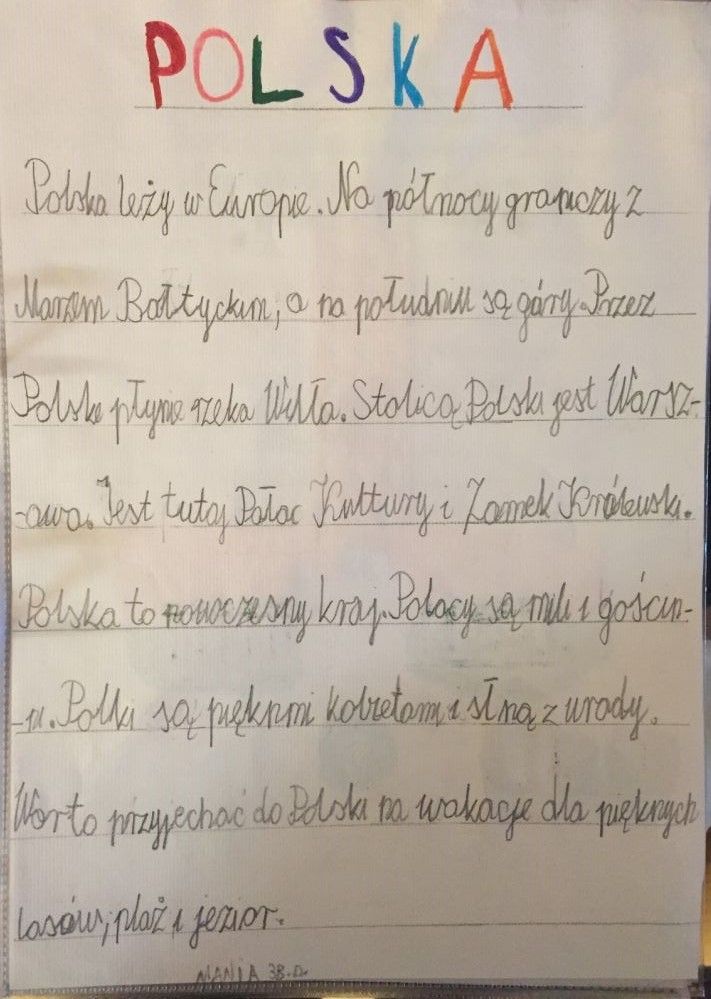 POLSKA
Polska leży w Europie. Na północy graniczy z
Morzem Bałtyckim, a na południu są góry. Przez
Polskę płynie rzeka Wisła. Stolicą Polski jest Warsz-
-awa. Jest tutaj Pałac Kultury i Zamek Królewski.
Polska to nowoczesny kraj. Polacy są mili i gościn-
-ni. Polki są pięknmi kobietami i słną z urody.
Warto przyjechać do Polski na wakacje dla pięknych
lasów, plaż i jezior.
MANIA